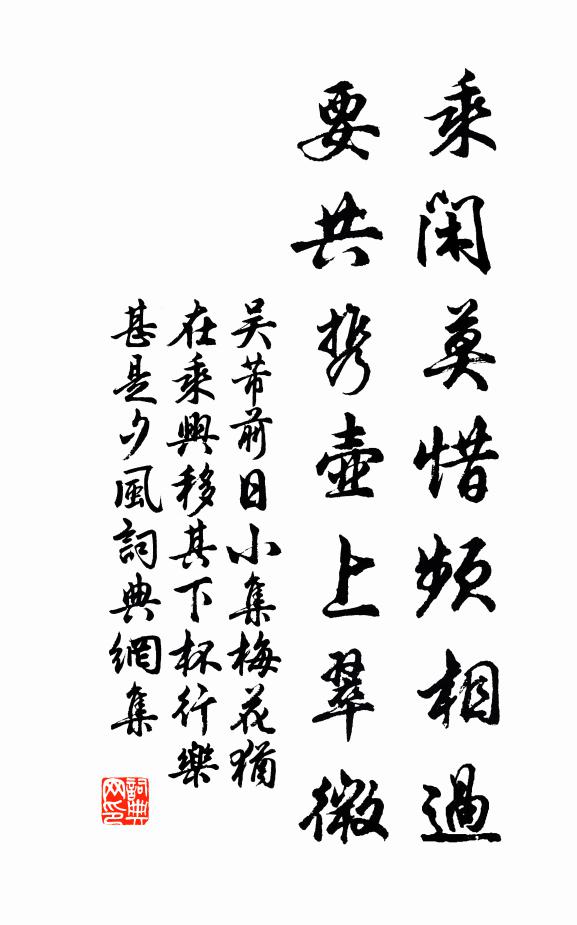 乘閑莫惜頻相過
要共攜壺上翠微
吳芾前日小集梅花猶
在乘興移其下杯行樂
甚是夕風詞典網集
詞典網印